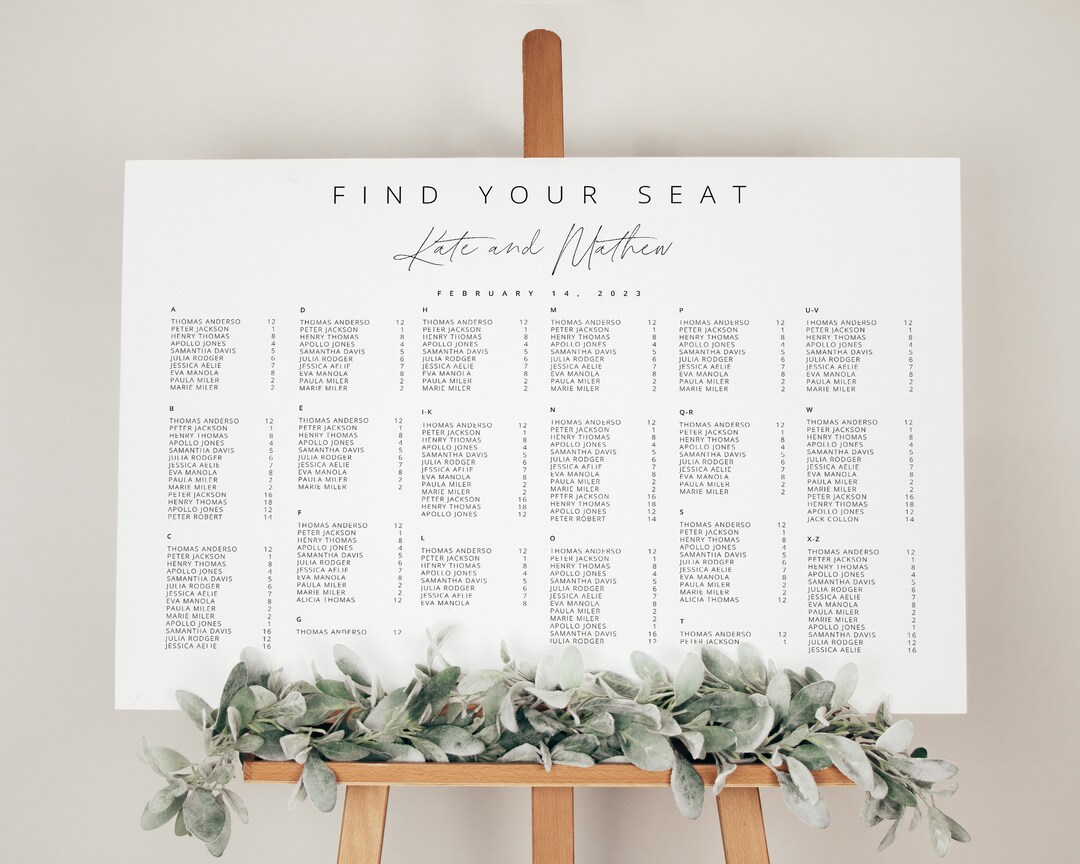 FIND YOUR SEAT
Kate and Mathew
FEBRUARY 14, 2023
A
THOMAS ANDERSO 12
PETER JACKSON 1
HENRY THOMAS 8
APOLLO JONES 4
SAMANTHA DAVIS 5
JULIA RODGER 6
JESSICA AELIE 7
EVA MANOLA 8
PAULA MILER 2
MARIE MILER 2
B
THOMAS ANDERSO 12
PETER JACKSON 1
HENRY THOMAS 8
APOLLO JONES 4
SAMANTHA DAVIS 5
JULIA RODGER 6
JESSICA AELIE 7
EVA MANOLA 8
PAULA MILER 2
MARIE MILER 2
PETER JACKSON 16
HENRY THOMAS 18
APOLLO JONES 12
PETER ROBERT 14
C
THOMAS ANDERSO 12
PETER JACKSON 1
HENRY THOMAS 8
APOLLO JONES 4
SAMANTHA DAVIS 5
JULIA RODGER 6
JESSICA AELIE 7
EVA MANOLA 8
PAULA MILER 2
MARIE MILER 2
APOLLO JONES 1
SAMANTHA DAVIS 16
JULIA RODGER 12
JESSICA AELIE 16
D
THOMAS ANDERSO 12
PETER JACKSON 1
HENRY THOMAS 8
APOLLO JONES 4
SAMANTHA DAVIS 5
JULIA RODGER 6
JESSICA AELIE 7
EVA MANOLA 8
PAULA MILER 2
MARIE MILER 2
E
THOMAS ANDERSO 12
PETER JACKSON 1
HENRY THOMAS 8
APOLLO JONES 4
SAMANTHA DAVIS 5
JULIA RODGER 6
JESSICA AELIE 7
EVA MANOLA 8
PAULA MILER 2
MARIE MILER 2
F
THOMAS ANDERSO 12
PETER JACKSON 1
HENRY THOMAS 8
APOLLO JONES 4
SAMANTHA DAVIS 5
JULIA RODGER 6
JESSICA AELIE 7
EVA MANOLA 8
PAULA MILER 2
MARIE MILER 2
ALICIA THOMAS 12
G
THOMAS ANDERSO 12
H
THOMAS ANDERSO 12
PETER JACKSON 1
HENRY THOMAS 8
APOLLO JONES 4
SAMANTHA DAVIS 5
JULIA RODGER 6
JESSICA AELIE 7
EVA MANOLA 8
PAULA MILER 2
MARIE MILER 2
I-K
THOMAS ANDERSO 12
PETER JACKSON 1
HENRY THOMAS 8
APOLLO JONES 4
SAMANTHA DAVIS 5
JULIA RODGER 6
JESSICA AELIE 7
EVA MANOLA 8
PAULA MILER 2
MARIE MILER 2
PETER JACKSON 16
HENRY THOMAS 18
APOLLO JONES 12
L
THOMAS ANDERSO 12
PETER JACKSON 1
HENRY THOMAS 8
APOLLO JONES 4
SAMANTHA DAVIS 5
JULIA RODGER 6
JESSICA AELIE 7
EVA MANOLA 8
M
THOMAS ANDERSO 12
PETER JACKSON 1
HENRY THOMAS 8
APOLLO JONES 4
SAMANTHA DAVIS 5
JULIA RODGER 6
JESSICA AELIE 7
EVA MANOLA 8
PAULA MILER 2
MARIE MILER 2
N
THOMAS ANDERSO 12
PETER JACKSON 1
HENRY THOMAS 8
APOLLO JONES 4
SAMANTHA DAVIS 5
JULIA RODGER 6
JESSICA AELIE 7
EVA MANOLA 8
PAULA MILER 2
MARIE MILER 2
PETER JACKSON 16
HENRY THOMAS 18
APOLLO JONES 12
PETER ROBERT 14
O
THOMAS ANDERSO 12
PETER JACKSON 1
HENRY THOMAS 8
APOLLO JONES 4
SAMANTHA DAVIS 5
JULIA RODGER 6
JESSICA AELIE 7
EVA MANOLA 8
PAULA MILER 2
MARIE MILER 2
APOLLO JONES 1
SAMANTHA DAVIS 16
JULIA RODGER 12
P
THOMAS ANDERSO 12
PETER JACKSON 1
HENRY THOMAS 8
APOLLO JONES 4
SAMANTHA DAVIS 5
JULIA RODGER 6
JESSICA AELIE 7
EVA MANOLA 8
PAULA MILER 2
MARIE MILER 2
Q-R
THOMAS ANDERSO 12
PETER JACKSON 1
HENRY THOMAS 8
APOLLO JONES 4
SAMANTHA DAVIS 5
JULIA RODGER 6
JESSICA AELIE 7
EVA MANOLA 8
PAULA MILER 2
MARIE MILER 2
S
THOMAS ANDERSO 12
PETER JACKSON 1
HENRY THOMAS 8
APOLLO JONES 4
SAMANTHA DAVIS 5
JULIA RODGER 6
JESSICA AELIE 7
EVA MANOLA 8
PAULA MILER 2
MARIE MILER 2
ALICIA THOMAS 12
T
THOMAS ANDERSO 12
PETER JACKSON 1
U-V
THOMAS ANDERSO 12
PETER JACKSON 1
HENRY THOMAS 8
APOLLO JONES 4
SAMANTHA DAVIS 5
JULIA RODGER 6
JESSICA AELIE 7
EVA MANOLA 8
PAULA MILER 2
MARIE MILER 2
W
THOMAS ANDERSO 12
PETER JACKSON 1
HENRY THOMAS 8
APOLLO JONES 4
SAMANTHA DAVIS 5
JULIA RODGER 6
JESSICA AELIE 7
EVA MANOLA 8
PAULA MILER 2
MARIE MILER 2
PETER JACKSON 16
HENRY THOMAS 18
APOLLO JONES 12
JACK COLLON 14
X-Z
THOMAS ANDERSO 12
PETER JACKSON 1
HENRY THOMAS 8
APOLLO JONES 4
SAMANTHA DAVIS 5
JULIA RODGER 6
JESSICA AELIE 7
EVA MANOLA 8
PAULA MILER 2
MARIE MILER 2
APOLLO JONES 1
SAMANTHA DAVIS 16
JULIA RODGER 12
JESSICA AELIE 16